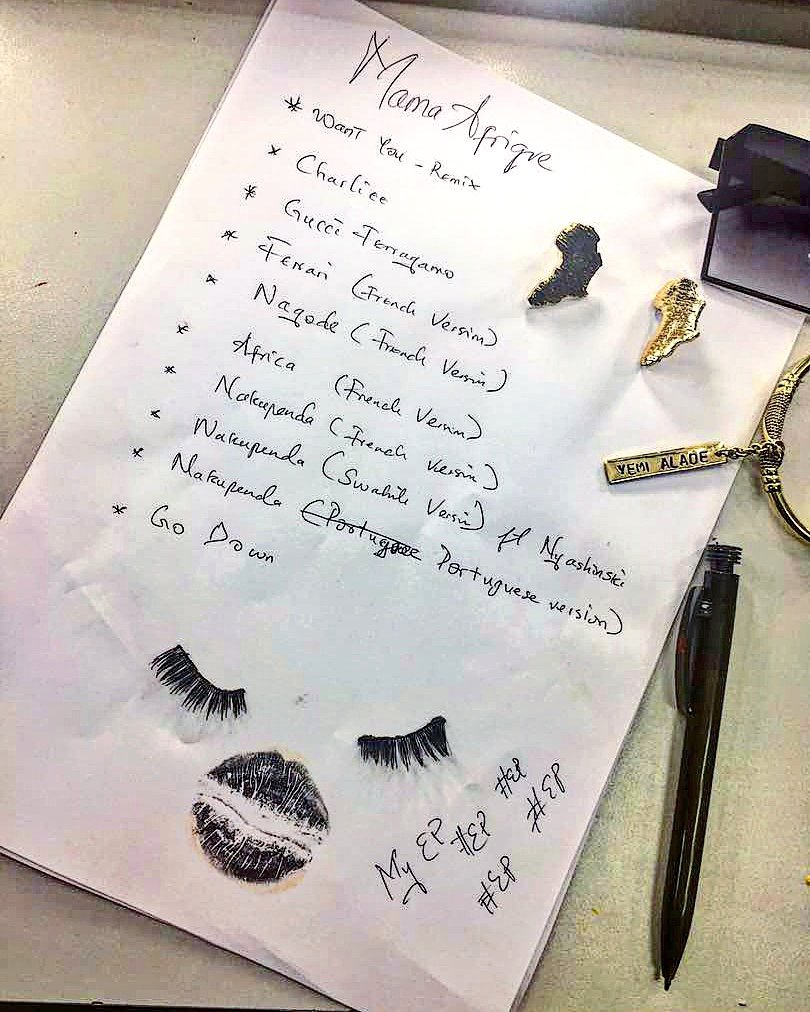 Mama Afrique
* Want You - Remix
* Charliee
* Gucci Ferragamo
* Ferrari (French Version)
* Nagode (French Version)
* Africa (French Version)
* Nakupenda (French Version)
* Nakupenda (Swahili Version) ft Nyashinski
* Nakupenda (Portuguese Portuguese version)
* Go Down
YEMI ALADE
My EP
#EP
#EP
#EP
#EP